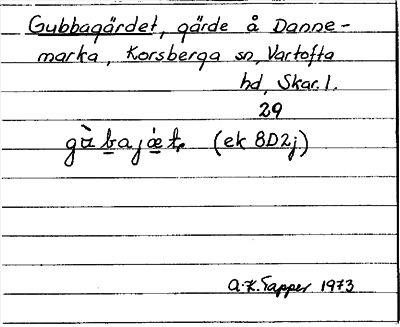 Gubbagärdet, gärde å Danne-
marka, Korsberga sn, Vartofta
hd, Skar. l.
29
(ek 8D2j)
A.K. Tapper 1973